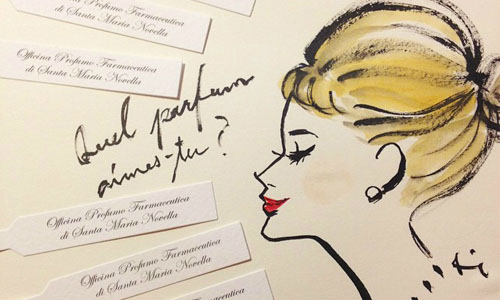 Officina Profumo Farmaceutica
di Santa Maria Novella
Officina Profumo Farmaceutica
di Santa Maria Novella
Quel parfum
aimes-tu?
Officina Profumo Farmaceutica
di Santa Maria Novella
Officina Profumo Farmaceutica
di Santa Maria Novella
Officina Profumo Farmaceutica